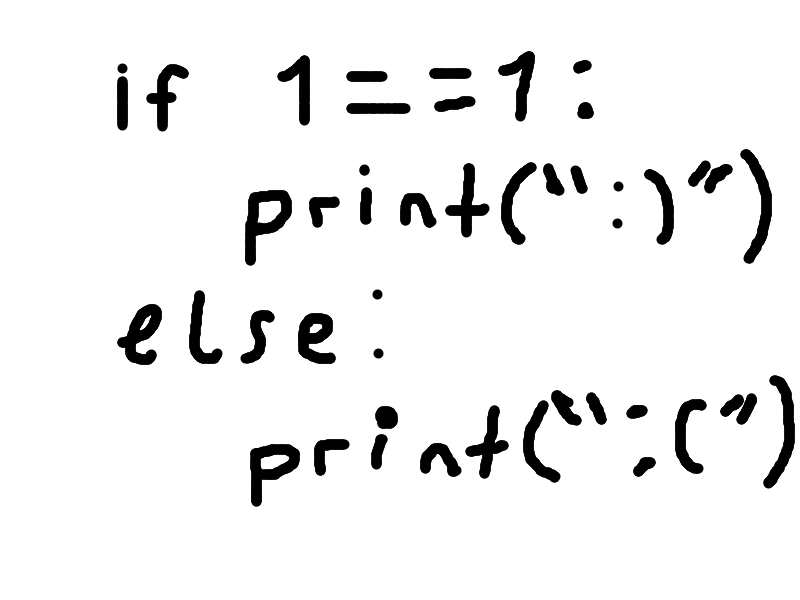 if 1==1:
    print(“:)”)
else:
    print(“:(”)